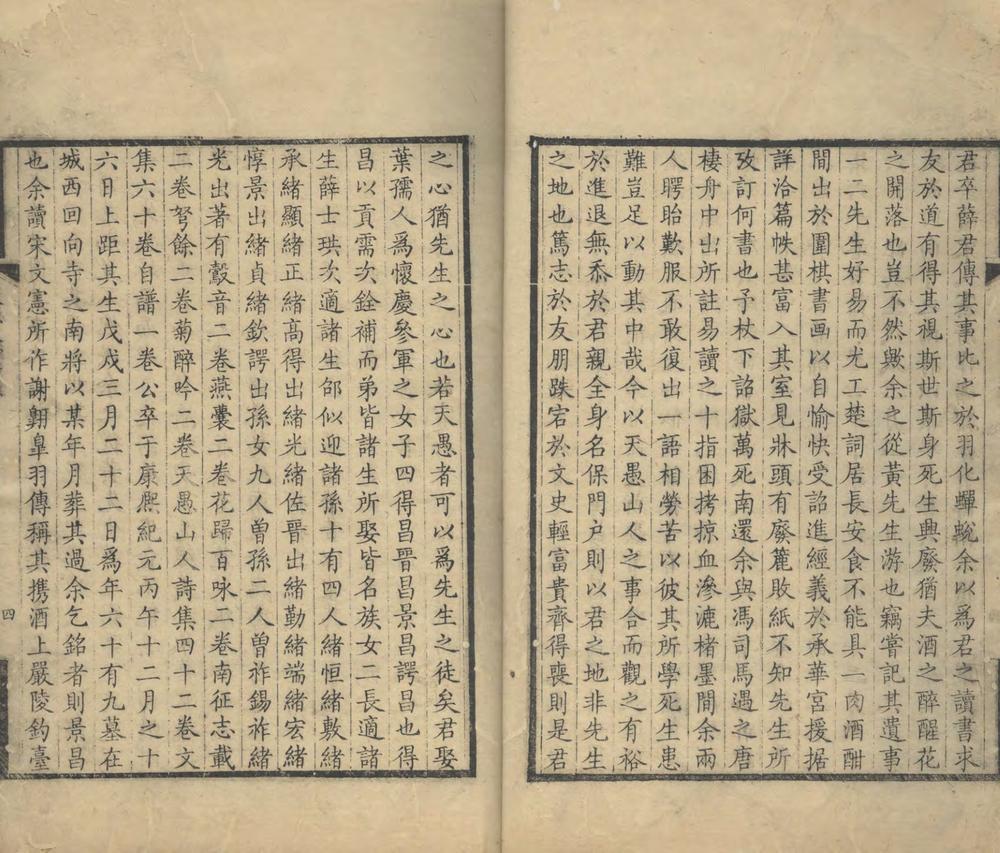 君卒薛君傳其事比之於羽化蟬蛻余以爲君之讀書求
友於道有得其視斯世斯身死生興廢猶夫酒之醉醒花
之開落也豈不然歟余之從黃先生游也竊嘗記其遺事
一二先生好易而尤工楚詞居長安食不能具一肉酒酣
間出於圍棋書画以自愉快受詔進經義於承華宮援据
詳洽篇帙甚富入其室見牀頭有廢簏敗紙不知先生所
攷訂何書也予杖下詔獄萬死南還余與馮司馬遇之唐
棲舟中出所註易讀之十指困拷掠血滲漉楮墨間余兩
人腭眙歎服不敢復出一語相勞苦以彼其所學死生患
難豈足以動其中哉今以天愚山人之事合而觀之有裕
於進退無忝於君親全身名保門户則以君之地非先生
之地也篤志於友朋跌宕於文史輕富貴齊得喪則是君
之心猶先生之心也若天愚者可以爲先生之徒矣君娶
葉孺人爲懷慶參軍之女子四得昌晉昌景昌諤昌也得
昌以貢需次銓補而弟皆諸生所娶皆名族女二長適諸
生薛士珙次適諸生邰似迎諸孫十有四人緒恒緒敷緒
承緒顯緒正緒高得出緒光緒佐晉出緒勤緒端緒宏緒
惇景出緒貞緒欽諤出孫女九人曾孫二人曾祚錫祚緒
光出著有鷇音二卷燕囊二卷花歸百咏二卷南征志載
二卷弩餘二卷菊醉吟二卷天愚山人詩集四十二卷文
集六十卷自譜一卷公卒于康熈紀元丙午十二月之十
六日上距其生戊戌三月二十二日爲年六十有九墓在
城西回向寺之南將以某年月葬其過余乞銘者則景昌
也余讀宋文憲所作謝翺皐羽傳稱其携酒上嚴陵釣臺
四